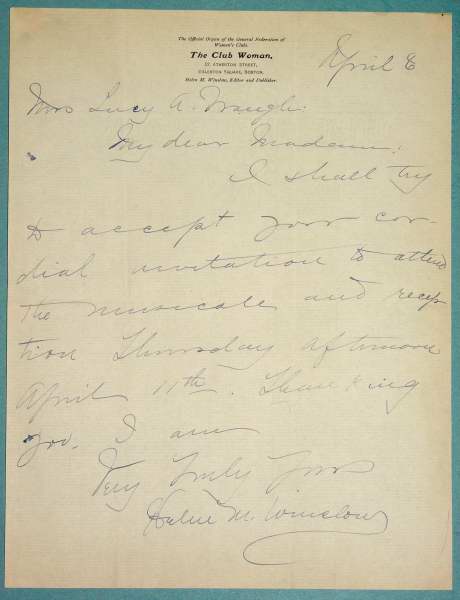 The Official Organ of the General Federation of
Women's Clubs.
The Club Woman,
ASHBURTON STREET,
SQUARE, BOSTON.
Helen M. Winslow, Editor and Publisher.
April 8
Mrs Lucy A.
My dear Madam:
I shall try
to accept your cor-
dial invitation to attend
the musicale and recep
tion Thursday afternoon
April 11th. Thanking
you, I am
Very truly yours
Helen M. Winslow